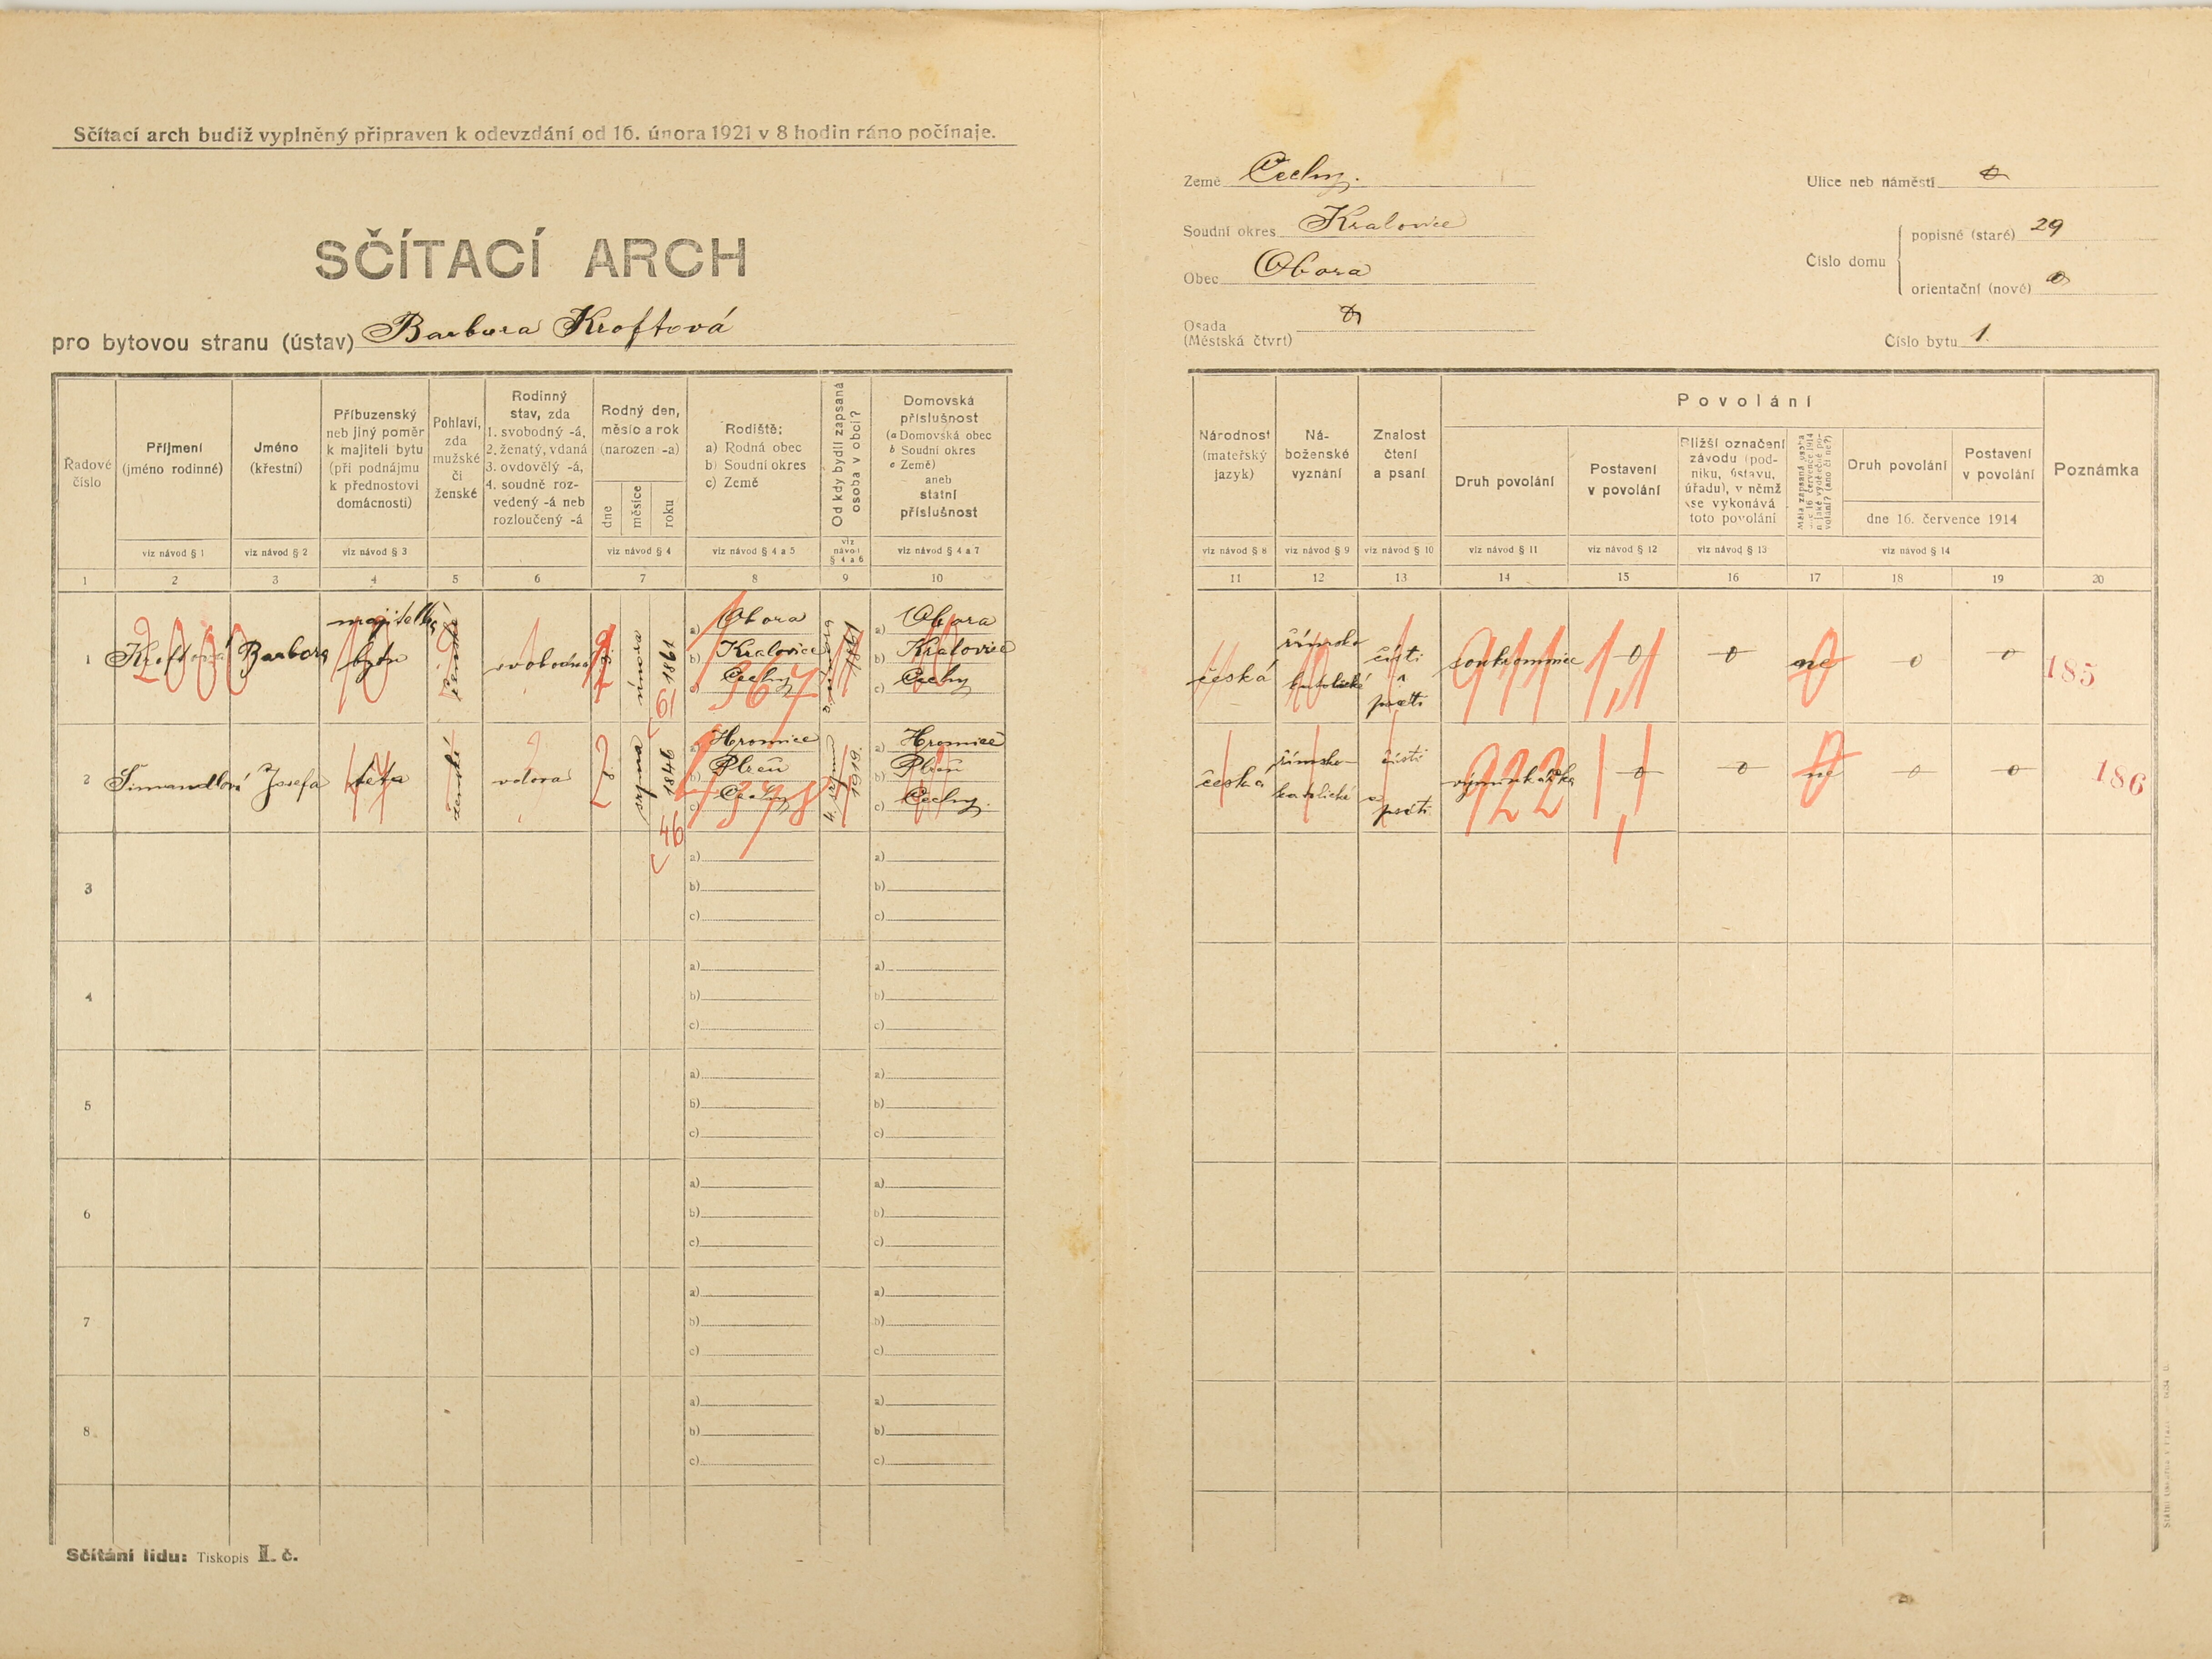 Sčítací arch budiž vyplněný připraven k odevzdání od 16. února 1921 v 8 hodin ráno počínaje.
SČÍTACÍ ARCH
pro bytovou stranu (ústav) Barbora Kroftová
Země Čechy.
Soudní okres Kralovice
Obec Obora
Osada
(Městská čtvrt)
Ulice neb náměstí
Číslo domu
popisné (staré) 29
orientační (nové)
Číslo bytu 1.
Řadové
číslo
Příjmení
(jméno rodinné)
viz návod § 1
Jméno
(křestní)
viz návod § 2
Příbuzenský
neb jiný poměr
k majiteli bytu
(při podnájmu
k přednostovi
domácnosti)
viz návod § 3
Pohlaví,
zda
mužské
či
ženské
Rodinný
stav, zda
1. svobodný -á,
2. ženatý, vdaná
3. ovdovělý -á,
4. soudně roz-
vedený -á neb
rozloučený -á
Rodný den,
měsíc a rok
(narozen -a)
dne
měsíce
roku
viz návod § 4
Rodiště:
a) Rodná obec
b) Soudní okres
c) Země
viz návod § 4 a 5
Od kdy bydlí zapsaná
osoba v obci?
viz
návod
§ 4 a 6
Domovská
příslušnost
(a Domovská obec
b Soudní okres
c Země)
aneb
státní
příslušnost
viz návod § 4 a 7
Národnost
(mateřský
jazyk)
viz návod § 8
Ná-
boženské
vyznání
viz návod § 9
Znalost
čtení
a psaní
viz návod § 10
Povolání
Druh povolání
viz návod § 11
Postavení
v povolání
viz návod § 12
Bližší označení
závodu (pod-
niku, ústavu,
úřadu), v němž
se vykonává
toto povolání
viz návod § 13
Měla zapsaná osoba
dne 16 července 1914
nějaké výdělečné po-
volání? (ano či ne?)
Druh povolání
Postavení
v povolání
dne 16. července 1914
viz návod § 14
Poznámka
1 2 3 4 5 6 7 8 9 10
11 12 13 14 15 16 17 18 19 20
1
Kroftová
Barbora
majitelka
bytu
ženské
svobodná
února
1861
61
a) Obora
b) Kralovice
c) Čechy
367
února
1861
a) Obora
b) Kralovice
c) Čechy
česká
římsko
katolické
čísti
a
psáti
soukromnice
911
0
0
ne
0
0
185
2
Šimandlová
Josefa
teta
ženské
vdova
8.
srpna
1846
46
a) Hromice
b) Plzeň
c) Čechy
378
4. srpna
1919.
a) Hromice
b) Plzeň
c) Čechy.
česká
římsko-
katolické
čísti
a
psáti
výminkářka
922
0
0
ne
0
0
186
3
a)
b)
c)
a)
b)
c)
4
a)
b)
c)
a)
b)
c)
5
a)
b)
c)
a)
b)
c)
6
a)
b)
c)
a)
b)
c)
7
a)
b)
c)
a)
b)
c)
8
a)
b)
c)
a)
b)
c)
Sčítání lidu: Tiskopis II. č.